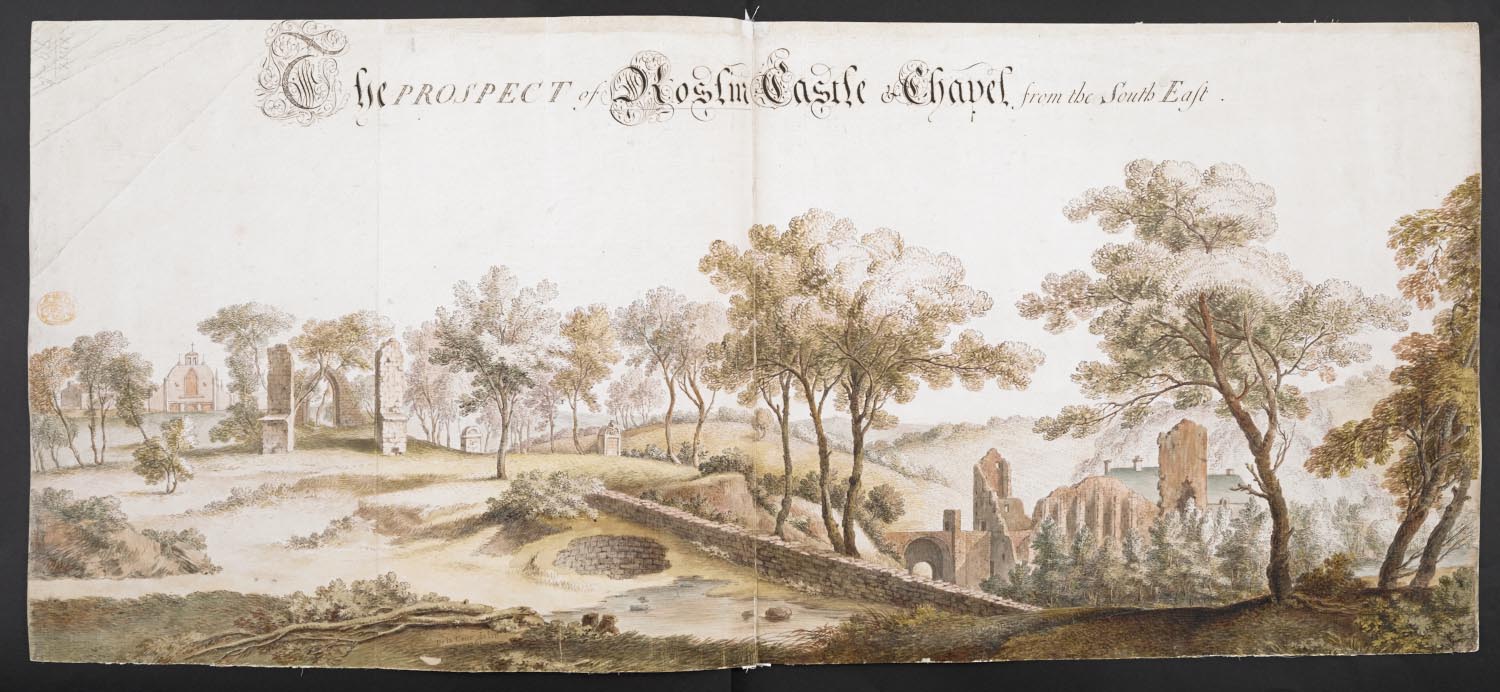 The PROSPECT of Roslin Castle & Chapel from the South East .